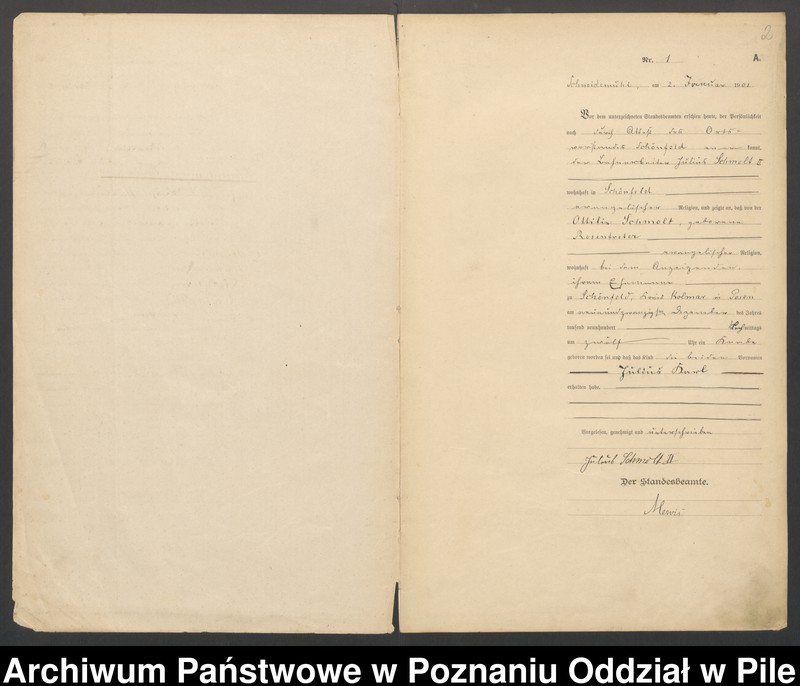 2
Nr. 1
A.
Schneidemühl, am 2. Januar 1901
Vor dem unterzeichneten Standesbeamten erschien heute, der Persönlichkeit
nach durch Attest des Orts-
vorstandes Schönfeld kannt,
der Bahnarbeiter Julius Schmolt II
wohnhaft in Schönfeld
evangelischer Religion, und zeigte an, daß von der
Ottilie Schmolt, geborene
Rosentreter
evangelischer Religion,
wohnhaft bei dem Anzeigenden
ihrem Ehemanne
zu Schönfeld, Kreis Kolmar in Posen
am neunundzwanzigsten Dezember des Jahres
tausend neunhundert mittags
um zwölf Uhr ein Knabe
geboren worden sei und daß das Kind die beiden Vornamen
Julius Karl
erhalten habe.
Vorgelesen, genehmigt und unterschrieben
Julius Schmolt II
Der Standesbeamte.
Archiwum Państwowe w Poznaniu Oddział w Pile